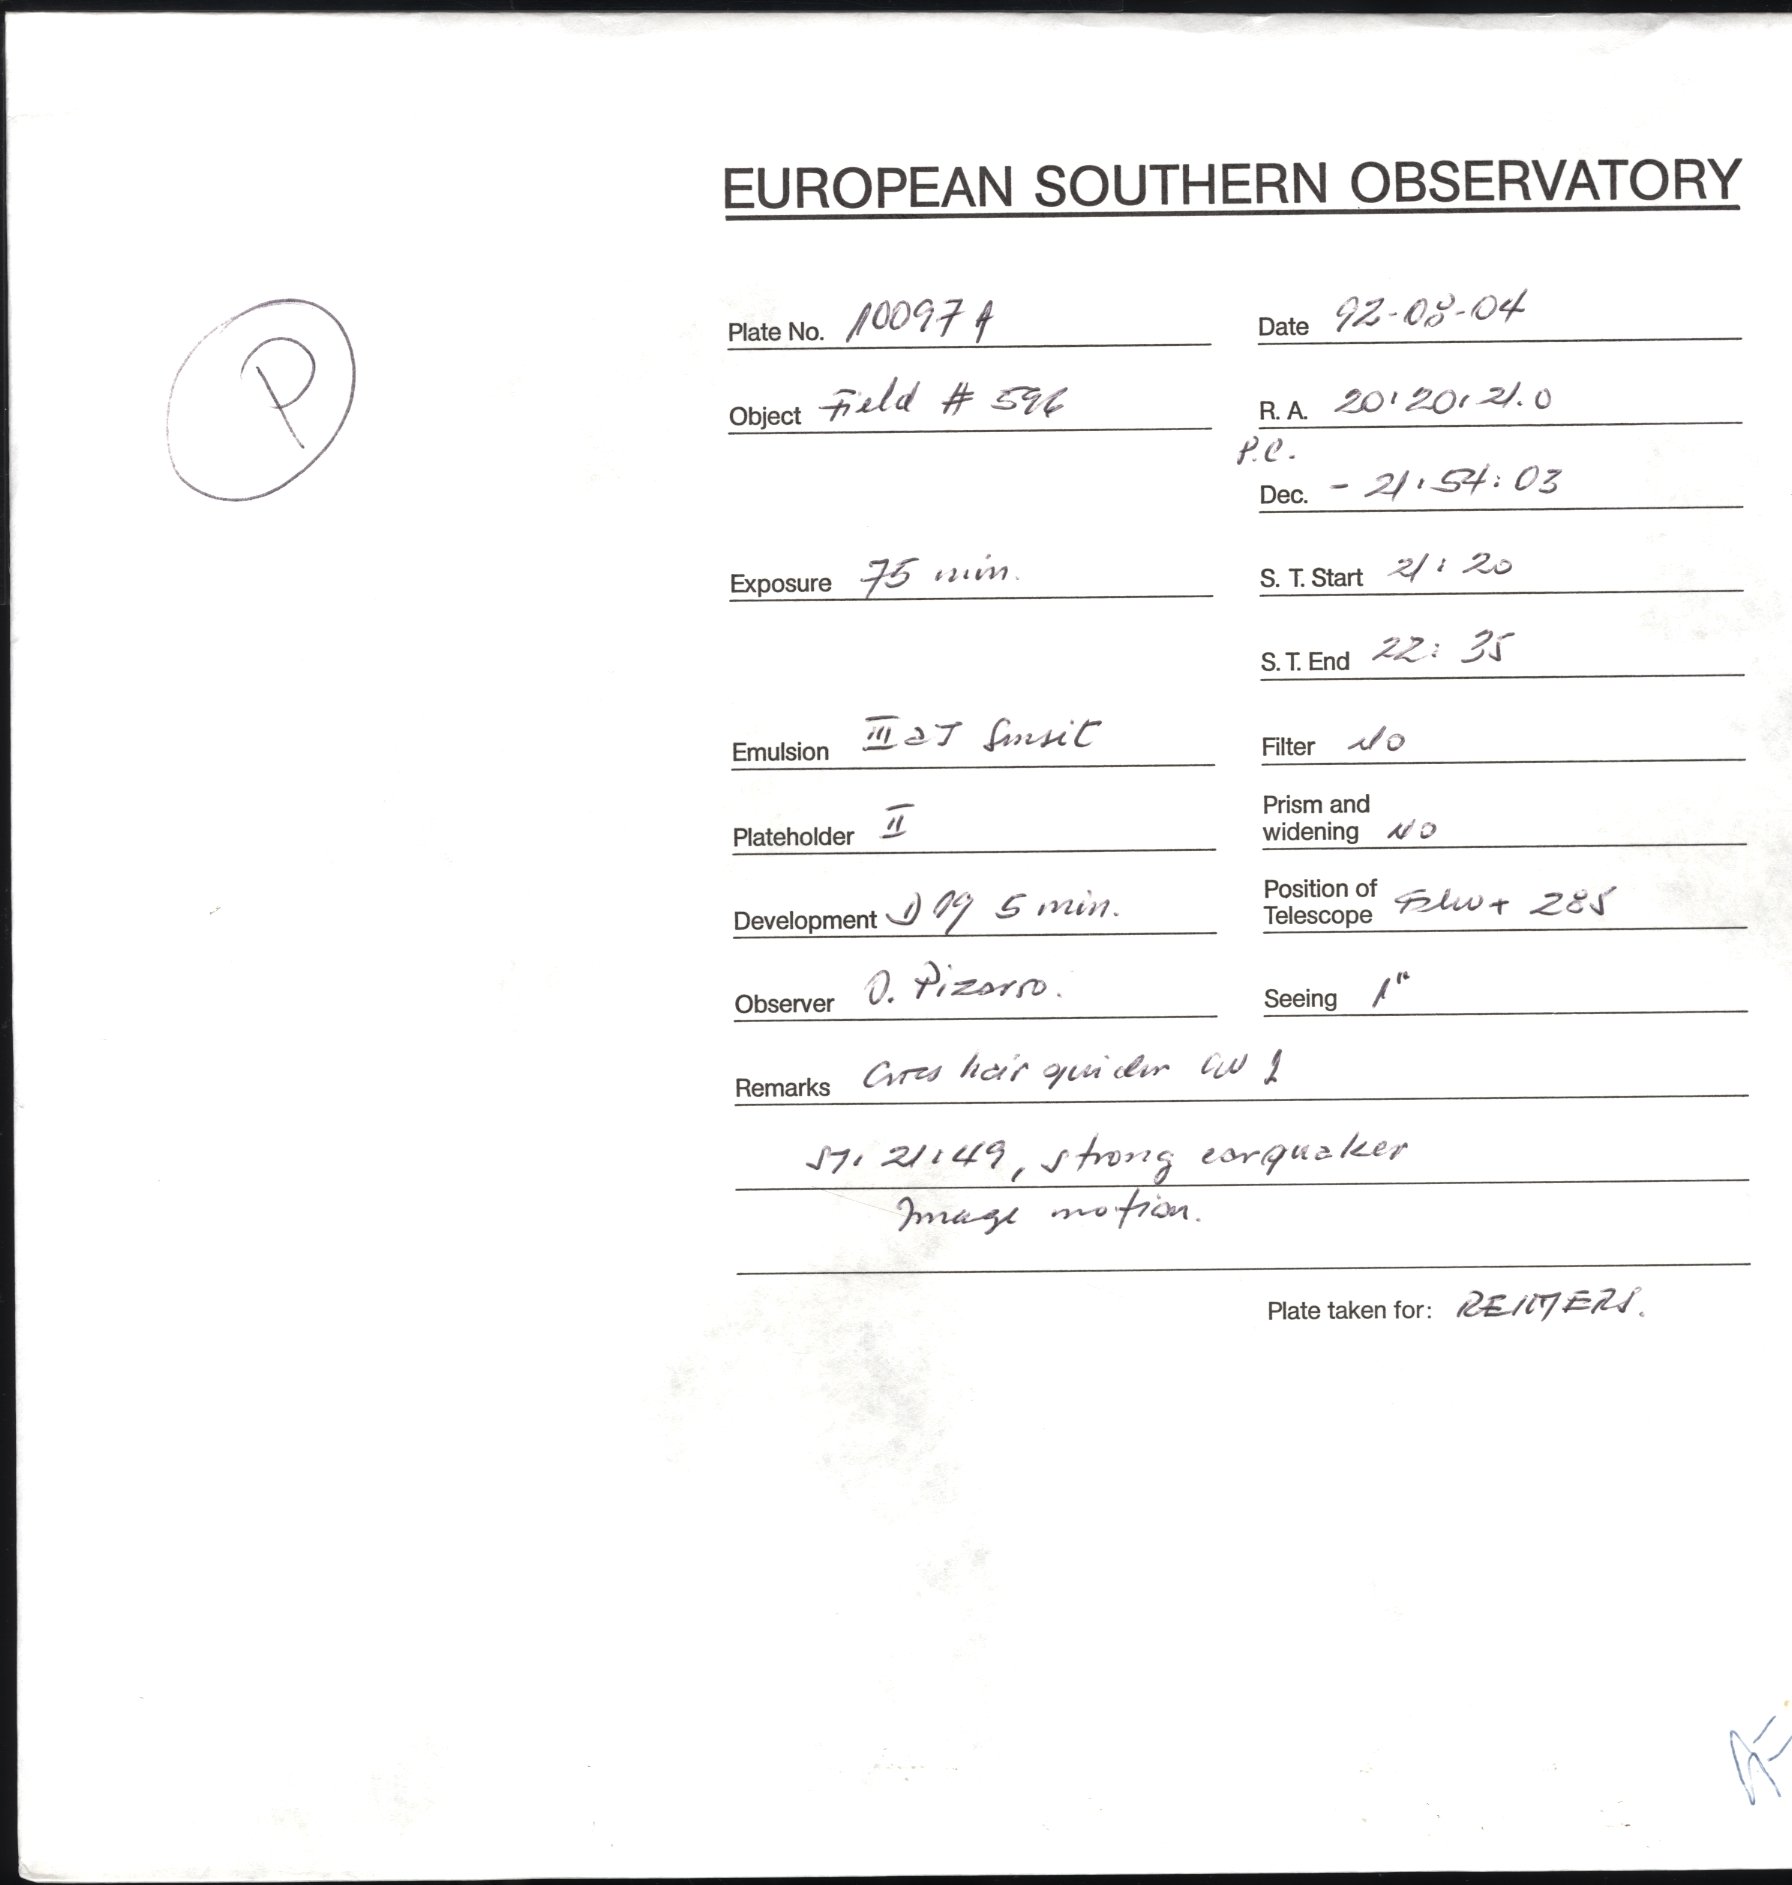 EUROPEAN SOUTHERN OBSERVATORY
P
Plate No. 10097 A
Date 92-08-04
Object Field # 596
R. A. 20:20:21.0
P.C.
Dec. - 21:54:03
Exposure 75 min.
S. T. Start 21:20
S. T. End 22:35
Emulsion III aJ Sensit
Filter NO
Plateholder II
Prism and
widening NO
Development D19 5 min.
Position of
Telescope 285
Observer O. Pizarro.
Seeing 1"
Remarks Cros hair guider
ST: 21:49, strong earquaker
Image motion.
Plate taken for: REIMERS.